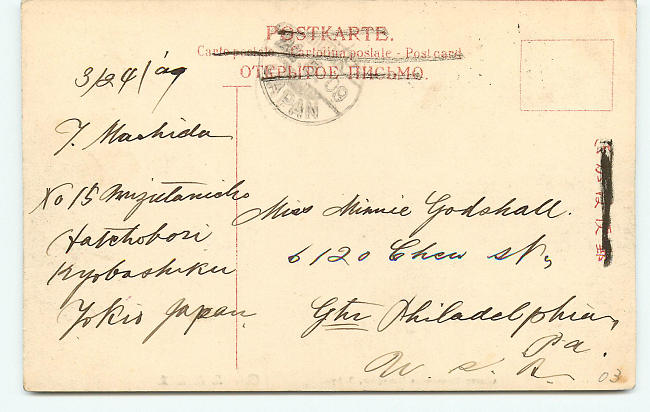 POSTKARTE.
Carte postale - Cartolina postale - Postcard
ОТКРЫТОЕ ПИСЬМО.
JAPAN
09
3/24/09
T. Mashida
No 15 Mizutanicho
Hatchobori
Kyobashiku
Tokio Japan
Miss Minnie Godshall.
6120 Chew St,
Gtn Philadelphia,
Pa.
U. S. A.
03